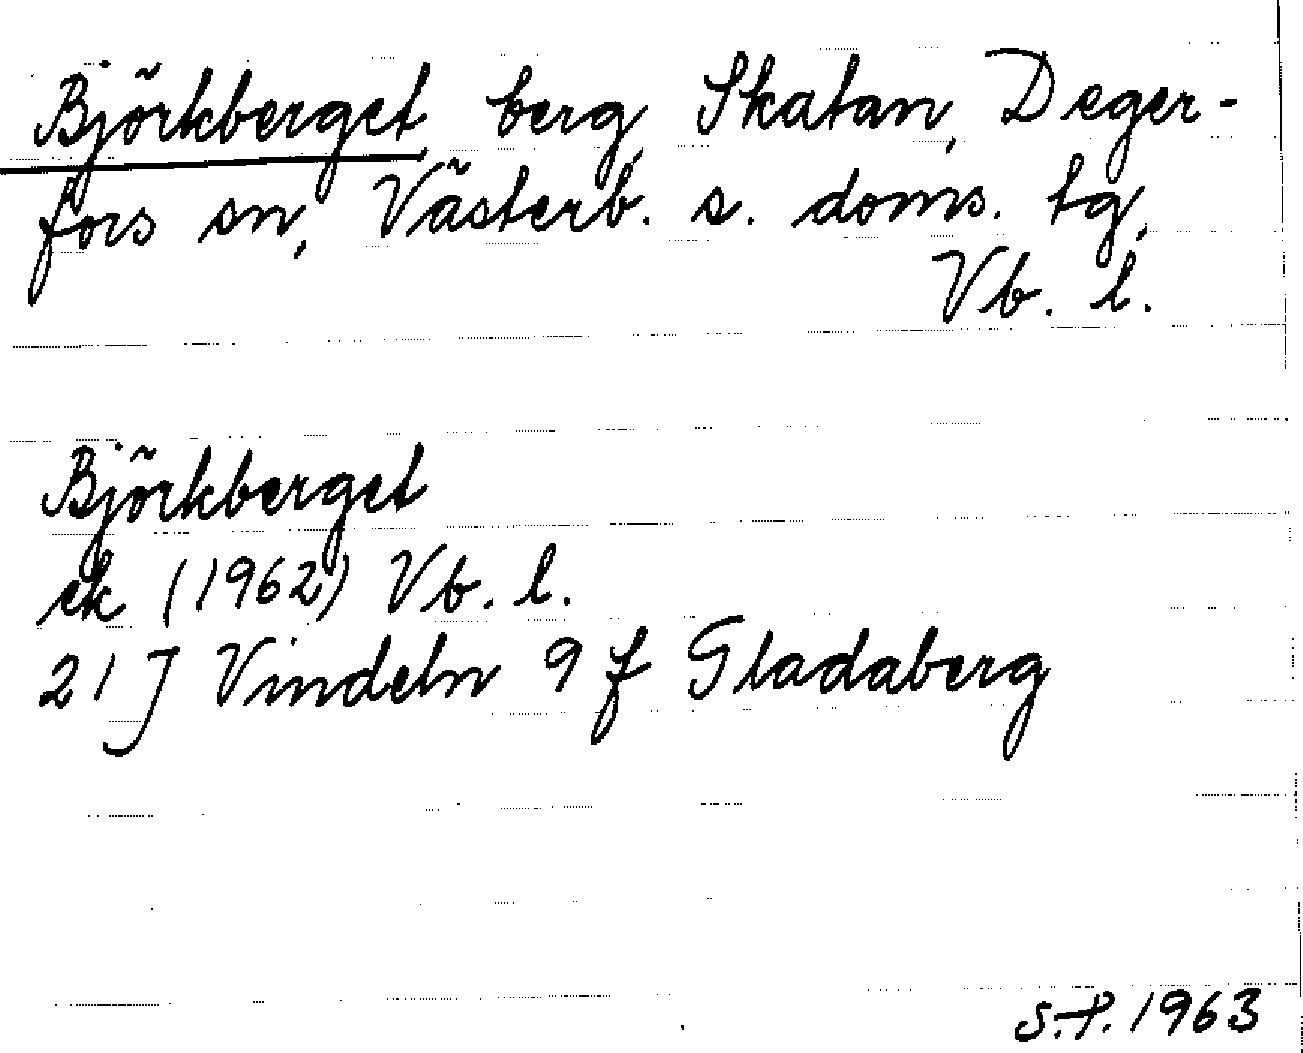 Björkberget, berg, Skatan, Deger-
fors sn, Västerb. s. doms. tg,
Vb. l.
Björkberget
ek (1962) Vb. l.
21 J Vindeln 9 f Gladaberg
S.P. 1963